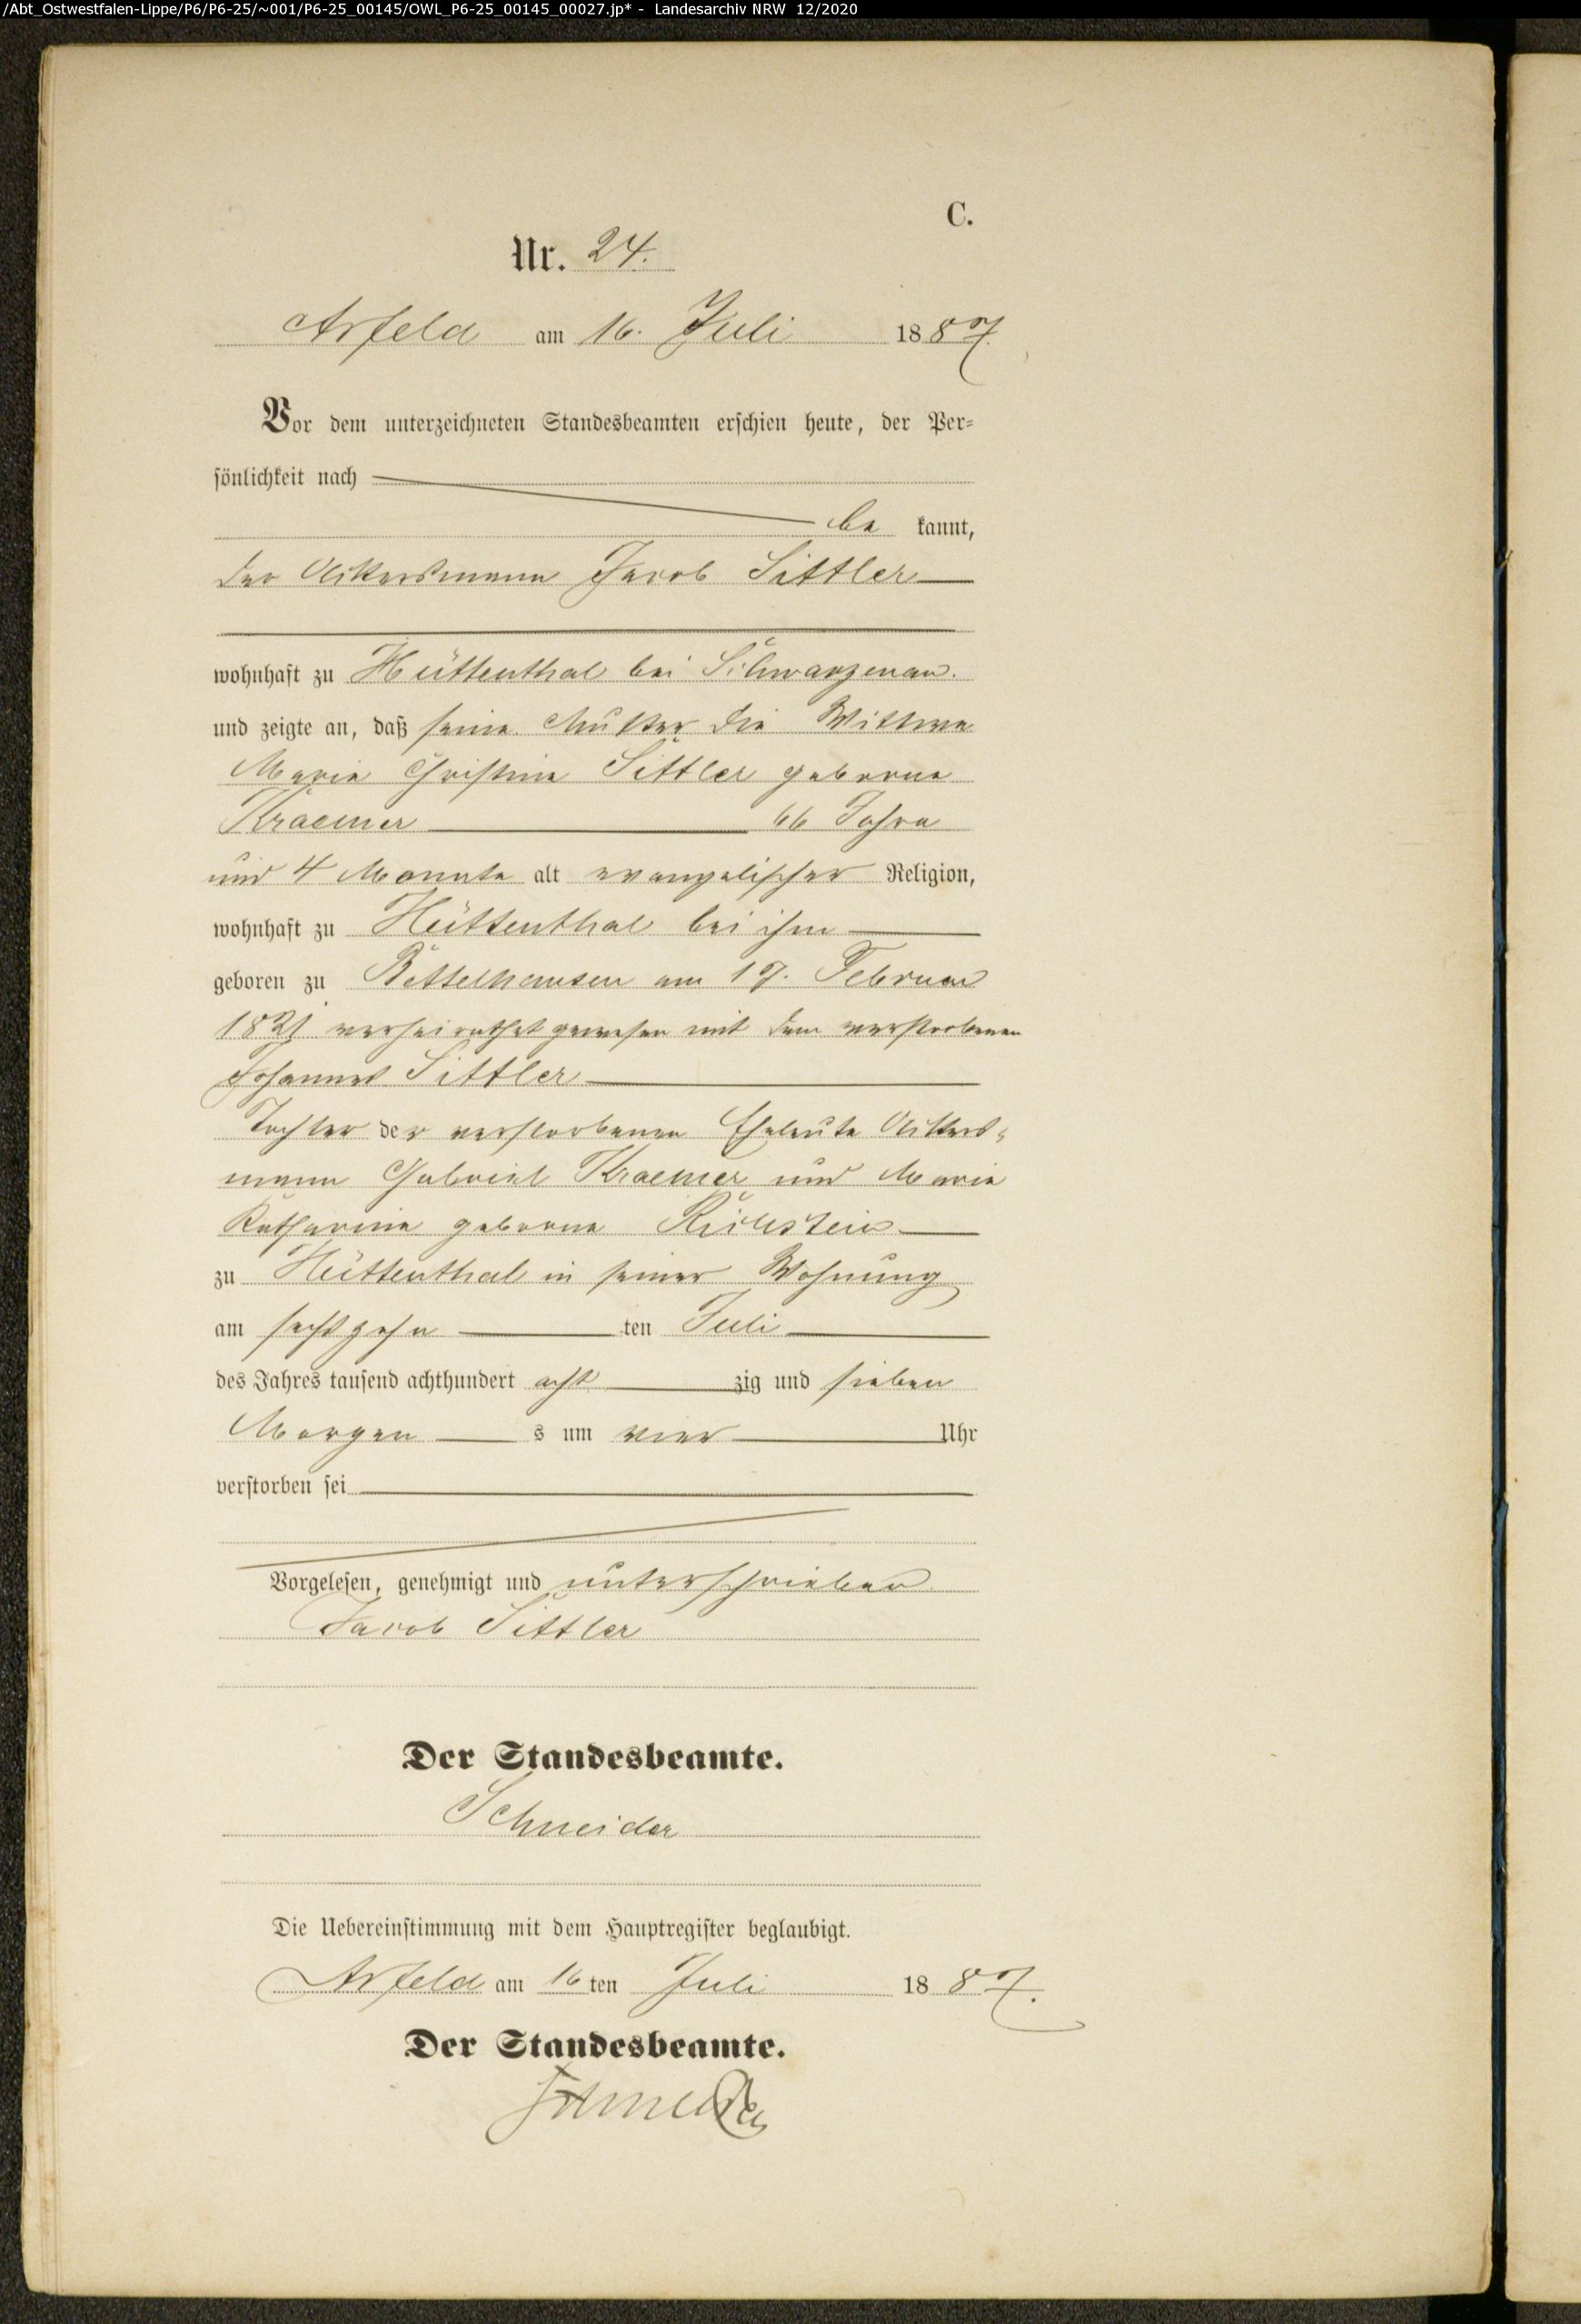 /Abt_Ostwestfalen-Lippe/P6/P6-25/~001/P6-25_00145/OWL_P6-25_00145_00027.jp* - Landesarchiv NRW 12/2020
C.
Nr. 24.
Arfeld am 16. Juli 1887.
Vor dem unterzeichneten Standesbeamten erschien heute, der Per-
sönlichkeit nach
be kannt,
der Ackersmann Jacob Sittler
wohnhaft zu Hüttenthal bei Schwarzenau.
und zeigte an, daß seine Mutter die Wittwe
Marie Christine Sittler geborne
Kraemer 66 Jahre
und 4 Monate alt evangelischer Religion,
wohnhaft zu Hüttenthal bei ihm
geboren zu Bettelhausen am 17. Februar
1821 verheirathet gewesen mit dem verstorbenen
Johannes Sittler
Tochter der verstorbenen Eheleute Ackers-
mann Gabriel Kraemer und Marie
Katharine geborne
zu Hüttenthal in seiner Wohnung
am sechszehn ten Juli
des Jahres tausend achthundert acht zig und sieben
Morgen s um vier Uhr
verstorben sei
Vorgelesen, genehmigt und unterschrieben
Jacob Sittler
Der Standesbeamte.
Schneider
Die Uebereinstimmung mit dem Hauptregister beglaubigt.
Arfeld am 16 ten Juli 1887.
Der Standesbeamte.
Schneider